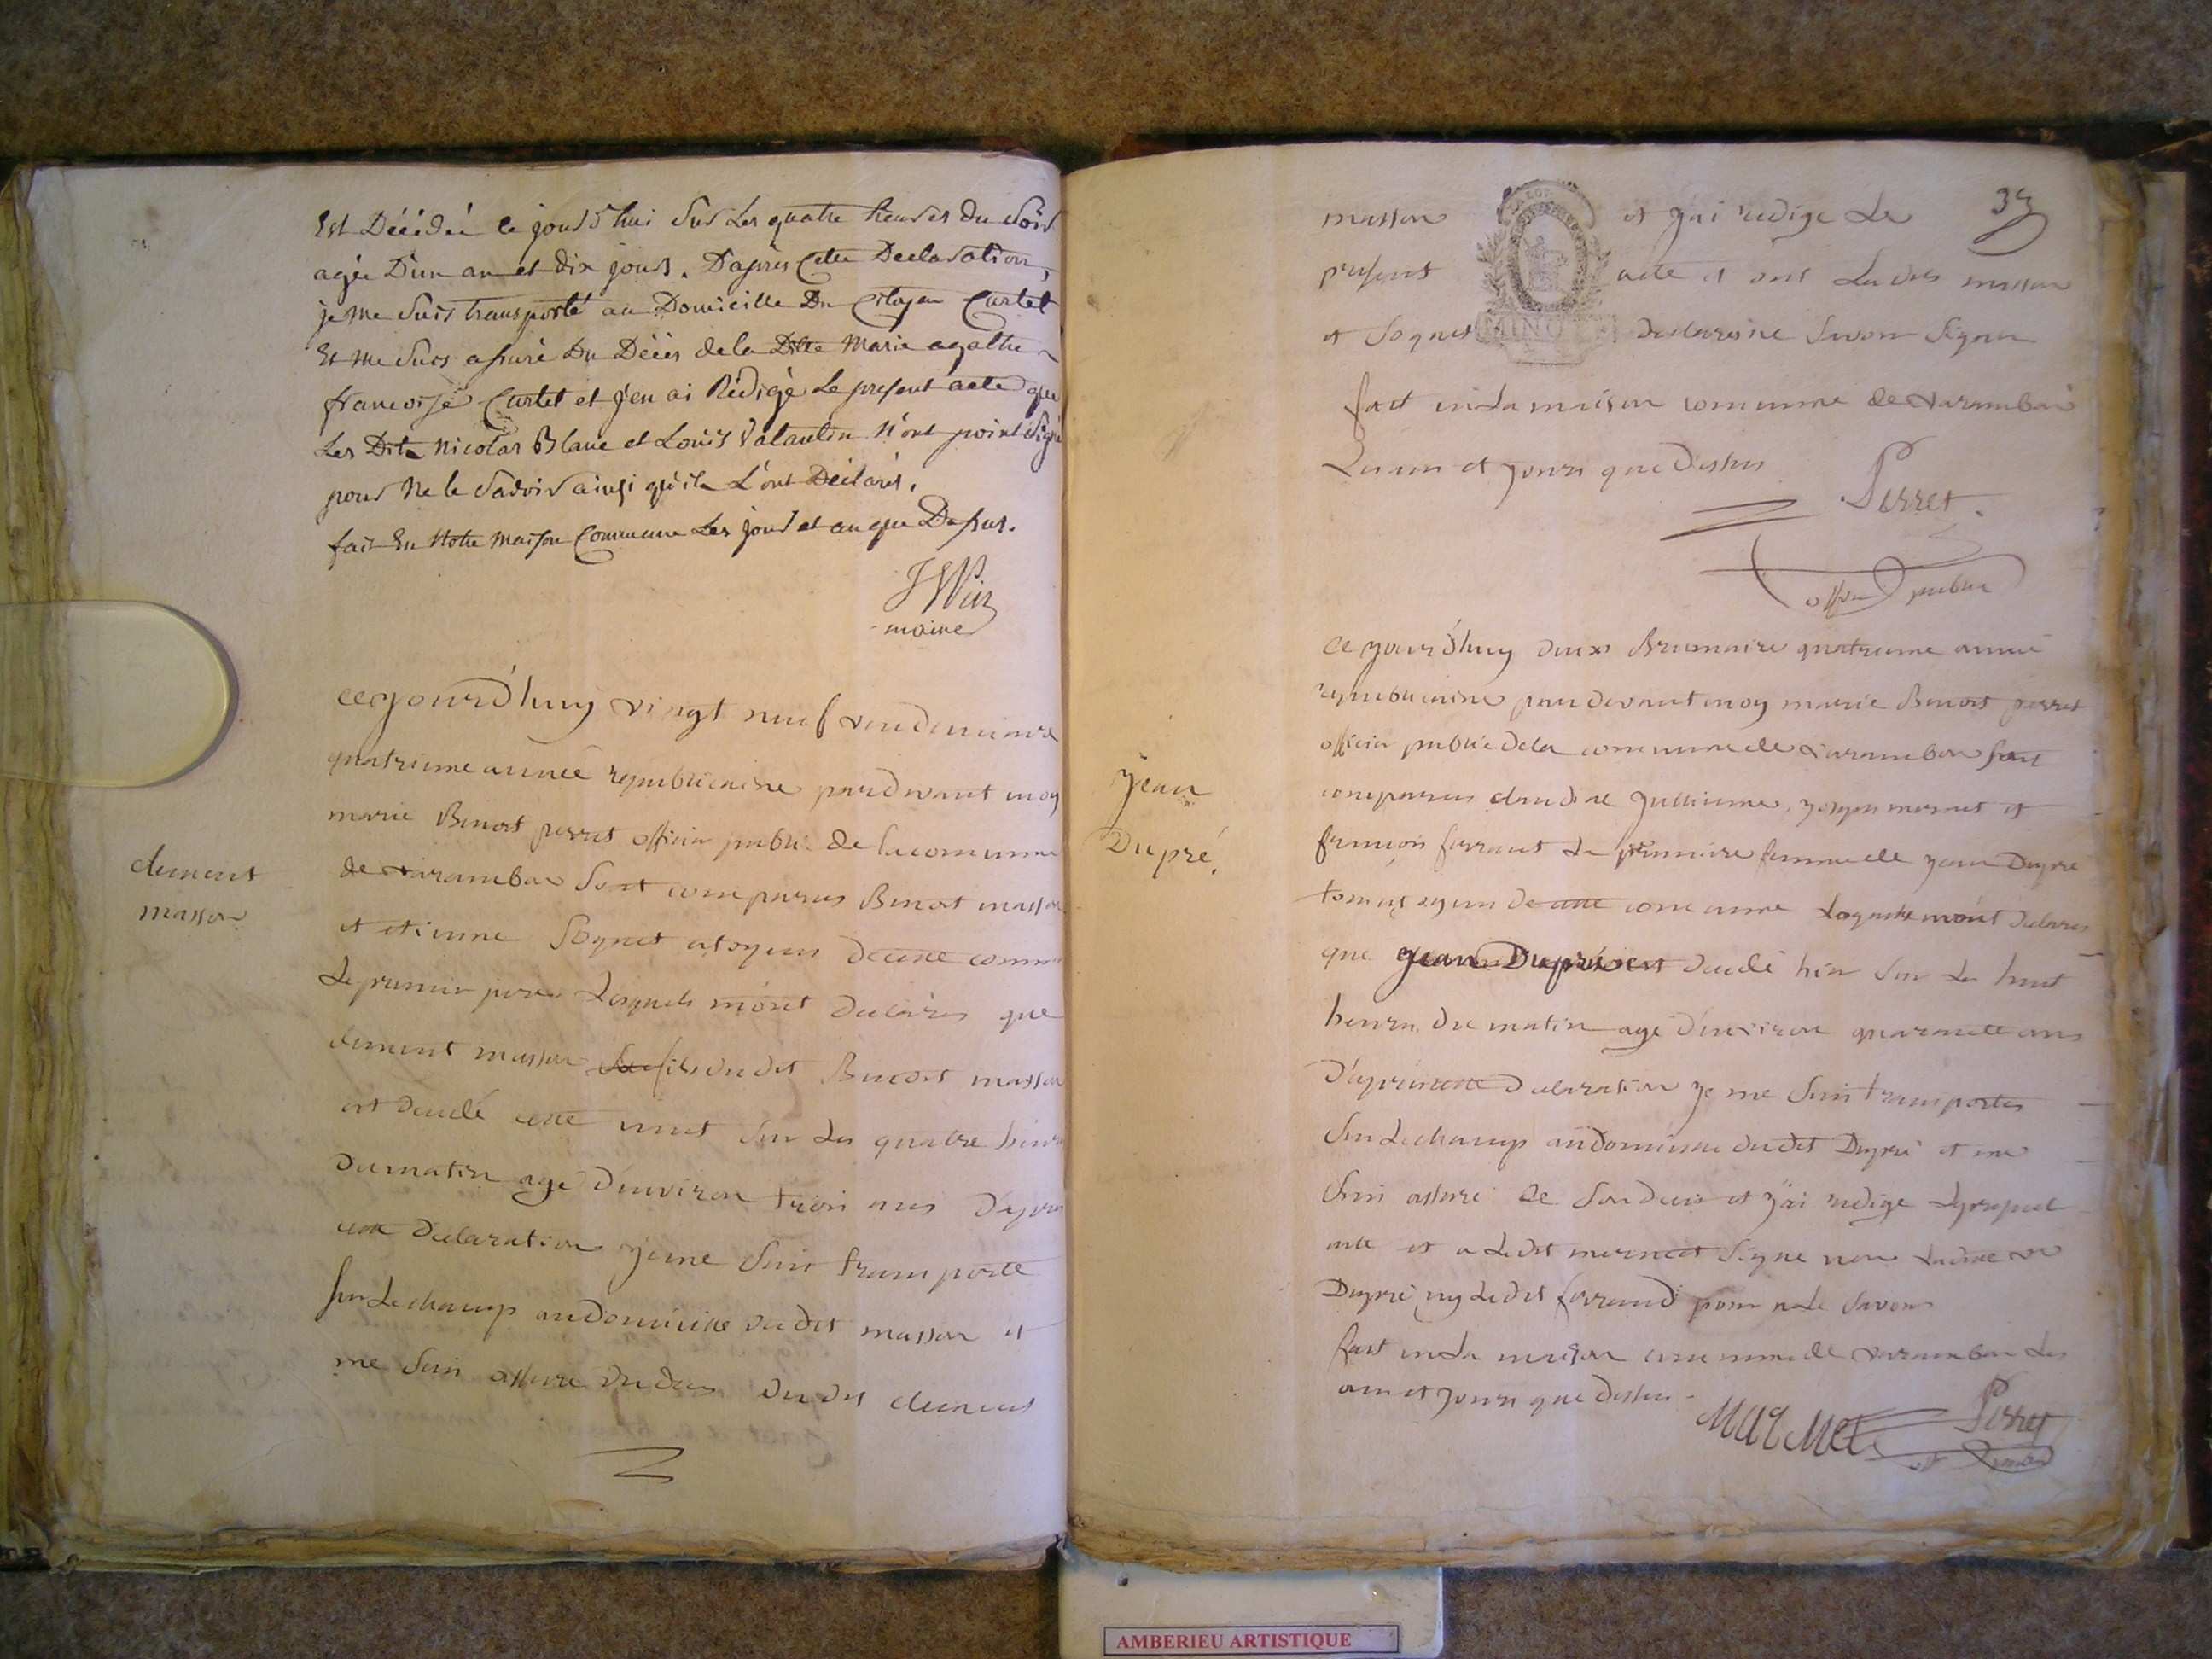 Est Décédéé ce jourd'hui sur Les quatre heures du Soir
agée D'un an et dix jours. D'apres Cette Declaration,
je me suis transporté au Domicille Du Citoyen Curtet
Et me suis assuré Du Décès de la Dite Marie agathe
francoise Curtet et j'en ai Rédigé Le present acte que
Les Dits Nicolas Blanc et Louis Valantin N'ont point Signé
pour Ne le Savoir ainsi qu'ils L'ont Déclarés.
fait En Notre maison Commune Les jour et an que Dessus.
maire
clement
masson
cejourd'huy vingt neuf vendemiaire
quatrieme année republicaine pardevant moy
marie Benoit perret officier public de la commune
de varambon sont comparus Benoit masson
et etienne Sognet citoyens de cette commune
Le premier pere Lesquels m'ont declarés que
clement masson fils dudit Benoit masson
est decedé cette nuit sur les quatre heures
du matin age d'environ trois ans D'apres
cette declaration je me suis transporté
sur Le champ au domicille dudit masson et
me suis assure du deces dudit clement
masson et j'ai redige Le
present acte et ont Lesdits masson
et Sognet declare ne savoir signer
fait en La maison commune de varambon
Les an et jours que dessus
Perret
officier public
Jean
Dupré.
ce jourd'huy deux Brumaire quatrieme année
republicaine par devant moy marie Benoit perret
officier public de la commune de varambon sont
comparus claudine jullienne, joseph mermet et
francois ferrant La premiere femme de jean Dupre
tous citoyens de cette commune Lesquels m'ont declares
que jean Dupré est decedé hier sur Les huit
heures du matin age d'environ quarante ans
D'apres cette declaration je me suis transportes
sur Le champ au domicille dudit Dupré et me
suis assure de son deces et j'ai redige Le present
acte et a Ledit mermet signe non Ladite
Dupré ny Ledit ferrand pour ne Le savoir
fait en La maison commune de varambon Les
an et jours que dessus
Marmet Perret
AMBERIEU ARTISTIQUE